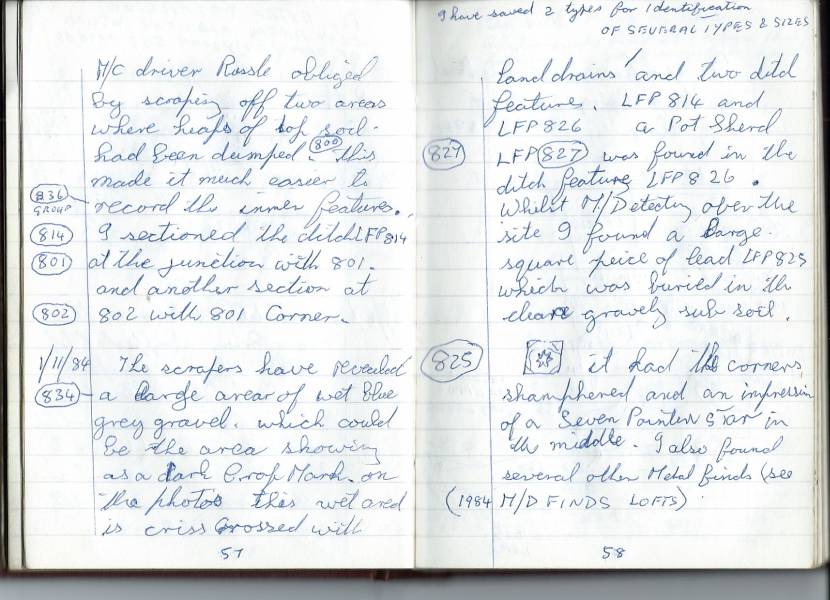 M/C driver Rossle obliged
by scraping off two areas
where heaps of top soil.
800
had been dumped. this
made it much easier to
836
GROUP
record the inner features.
814
I sectioned the ditch LFP 814
801
at the junction with 801.
and another section at
802
802 with 801 Corner.
1/11/84 The scrapers have revealed
834 a large area of wet blue
grey gravel. which could
be the area showing
as a dark Crop Mark. on
the photos this wet area
is criss crossed with
57
I have saved 2 types for Identification
OF SEVERAL TYPES & SIZES
Land drains and two ditch
features. LFP 814 and
LFP 826 a Pot Sherd
827 LFP 827 was found in the
ditch feature LFP 826.
Whilst M/Detecting over the
site I found a large.
square peice of lead LFP 825
which was buried in the
clean gravely sub soil.
825 it had the corners
shamphered and an impression
of a Seven Pointed Star in
the middle. I also found
several other Metal finds (see
(1984 M/D FINDS LOFTS).
58